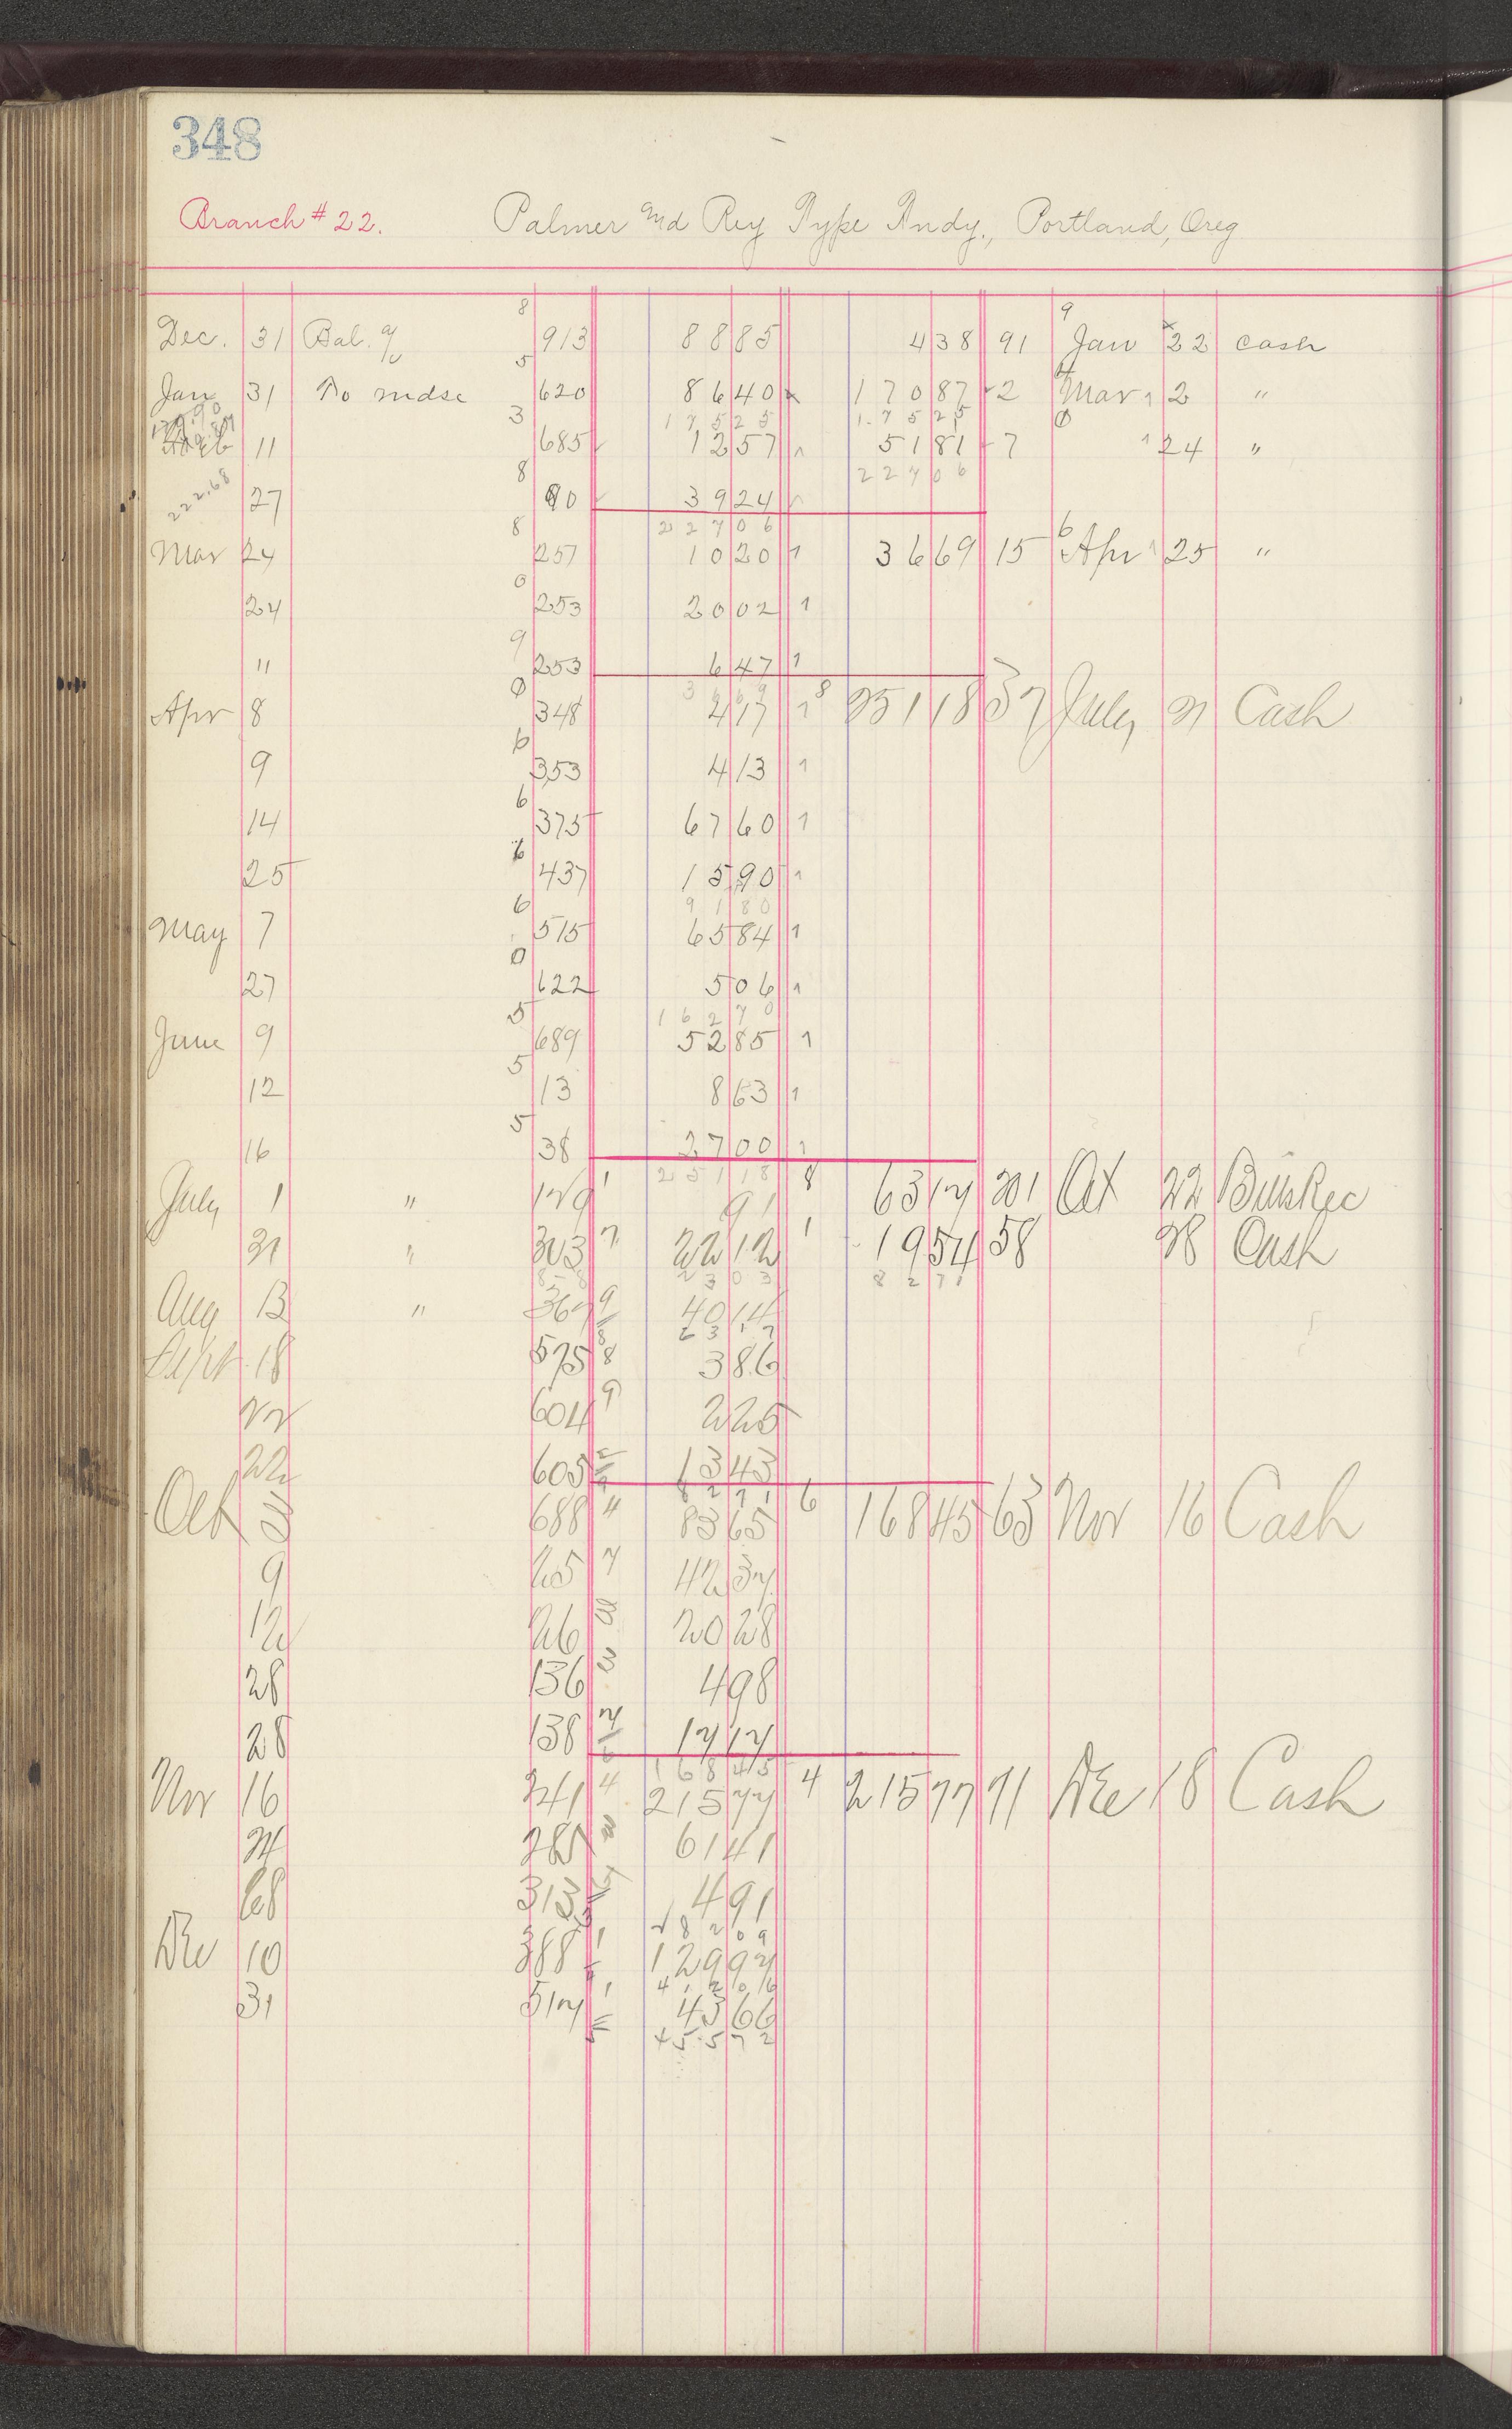 348
Branch # 22. Palmer and Rey Type Fndy., Portland, Oreg
8 9
Dec. 31 Bal. 913 88 85 4 38 91 Jan 22 cash
5
Jan 31 To mdse 620 86 40 170 87 2 Mar 2 "
3 175 25 175 25
11 685 12 57 51 81 7 24 "
8 224 06
222.68 27 90 39 24
8 227 06 6
Mar 24 257 10 20 36 69 15 Apr 25 "
0
24 253 20 02
9
" 253 6 47
0 36 69
Apr 8 348 4 17 8 251 18 37 July 21 Cash
6
9 353 4 13
6
14 375 67 60
6
25 437 15 90
6 91 80
May 7 515 65 84
0
27 622 5 06
5 162 70
June 9 689 52 85
5
12 13 8 63
5
16 38 27 00
251 18
July 1 " 129 1 91 8 63 17 201 Oct 22
31 " 303 7 22 12 1 19 54 58 28 Cash
23 03 82 71
Aug 13 " 367 9 40 14
63 17
Sept 18 575 8 3 86
22 604 9 2 25
22 605 13 43
82 71
Oct 3 688 " 83 65 6 168 45 63 Nov 16 Cash
9 25 7 42 37
12 26 20 28
28 136 3 4 98
28 138 7 17 17
168 45
Nov 16 241 4 215 77 4 215 77 71 Dec 18 Cash
24 285 61 41
28 313 4 91
282 09
Dec 10 388 1 129 97
412 06
31 517 1 43 66
455 72